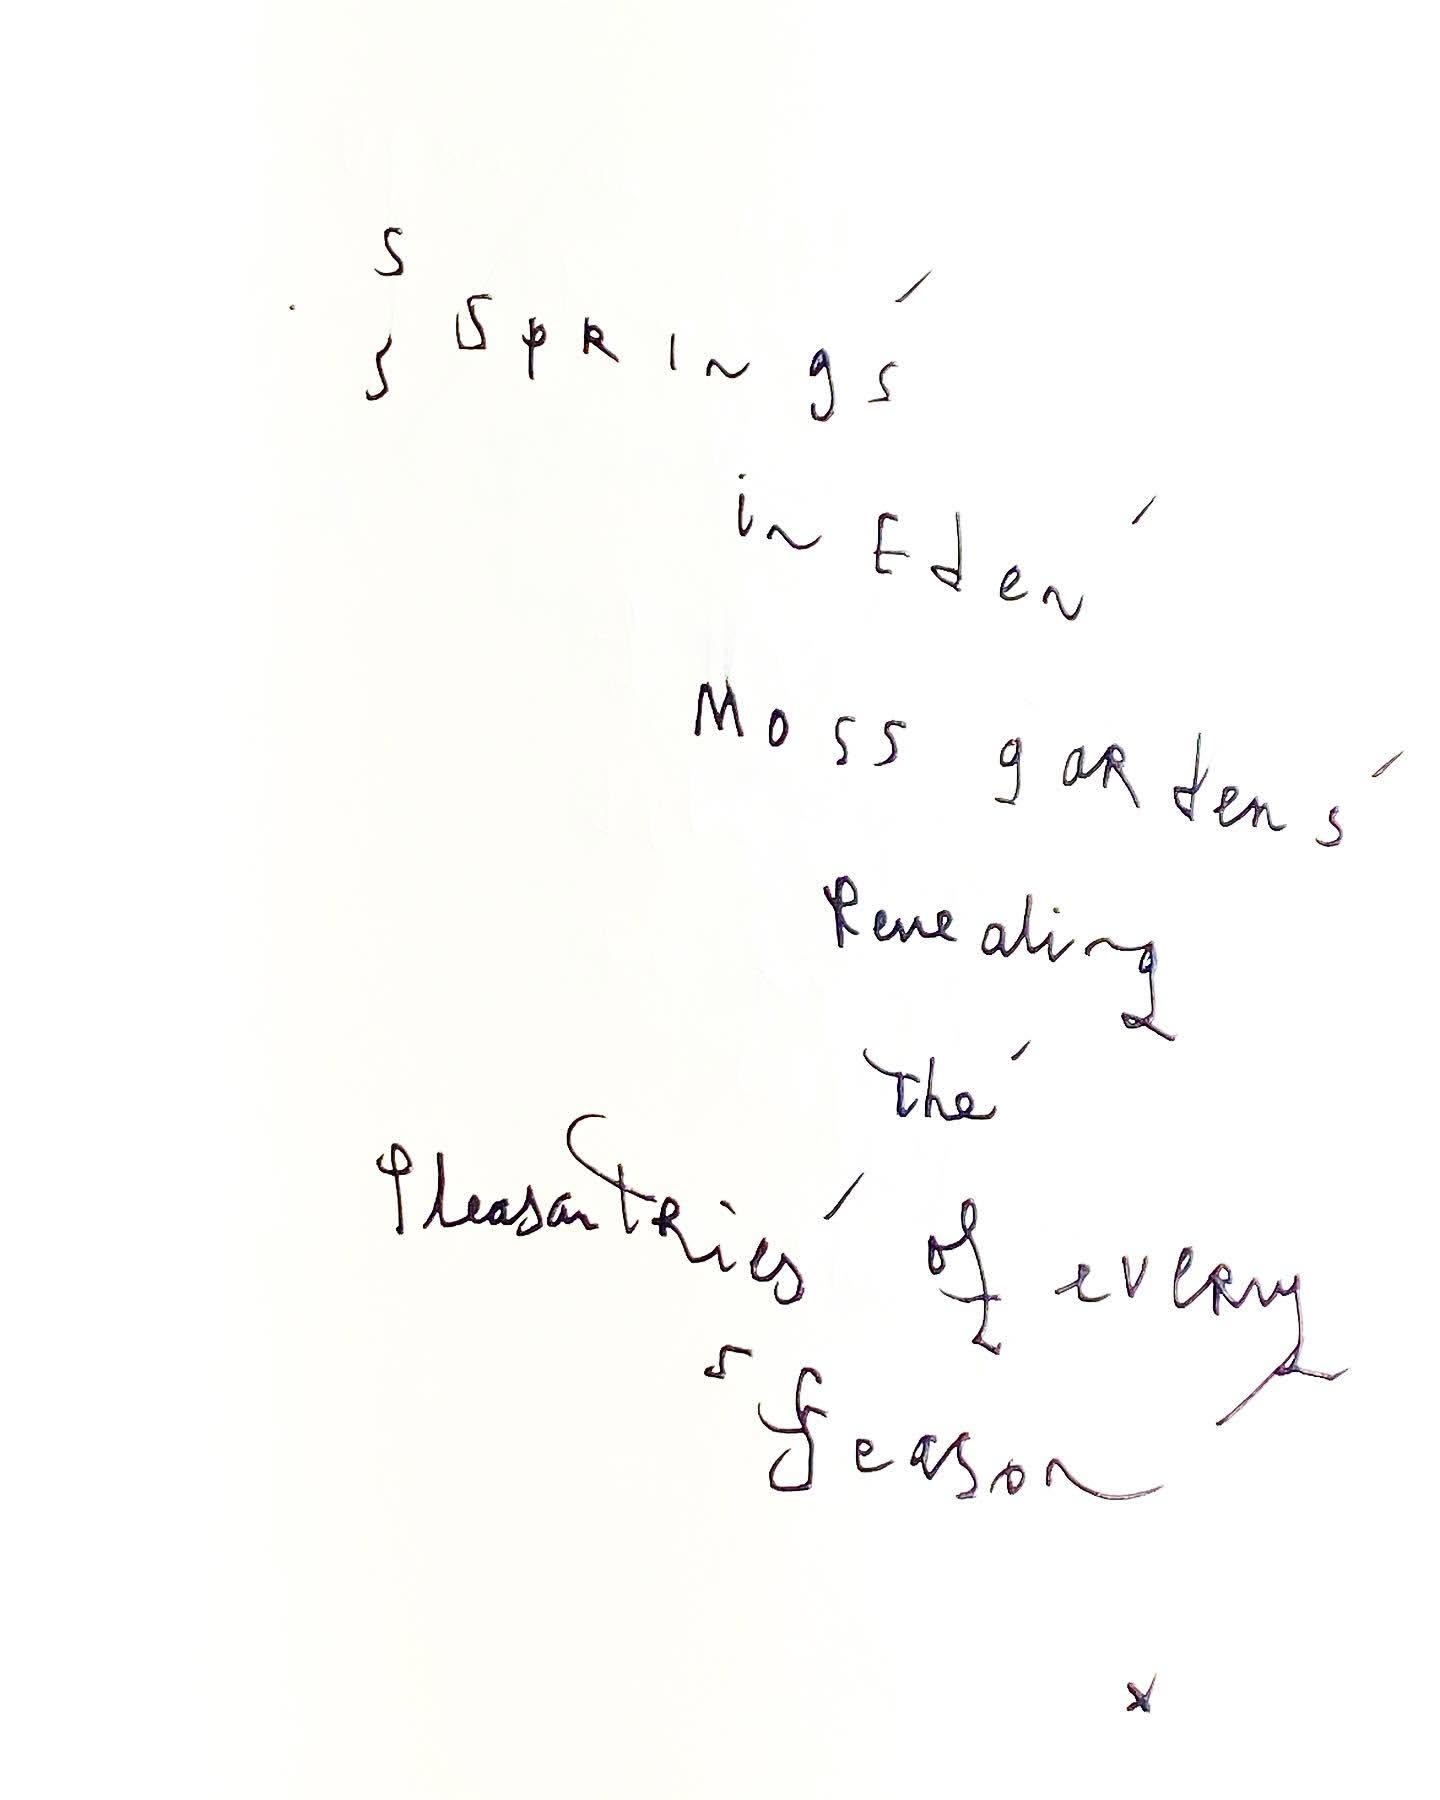 s
s SpRings´
in Eden´
Moss gaRdens´
Revealing
the´
PleasantRies´ of eveRy
s Season
x